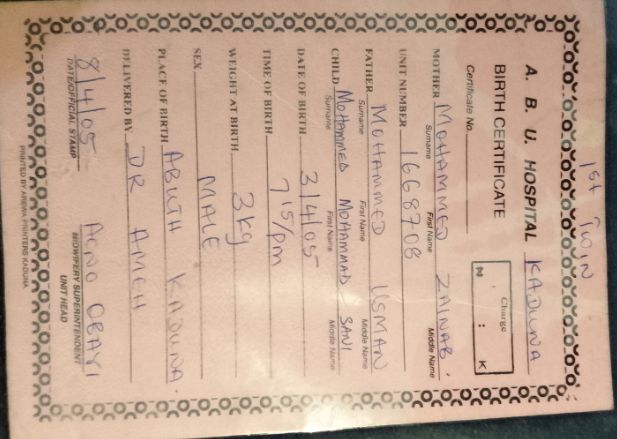 1st TWIN
A. B. U. HOSPITAL KADUNA
BIRTH CERTIFICATE
Charge
N : K
Certificate No.
MOTHER MOHAMMED ZAINAB.
Surname First Name Middle Name
UNIT NUMBER 1668708
FATHER MOHAMMED USMAN
Surname First Name Middle Name
CHILD MOHAMMED MOHAMMAD SANI
Surname First Name Middle Name
DATE OF BIRTH 3/4/05
TIME OF BIRTH 7 15/pm
WEIGHT AT BIRTH 3kg
SEX MALE
PLACE OF BIRTH ABUTH KADUNA.
DELIVERED BY DR AMEH
8/4/05
DATE/OFFICIAL STAMP MIDWIFERY SUPERINTENDENT
UNIT HEAD
PRINTED BY AREWA PRINTERS KADUNA